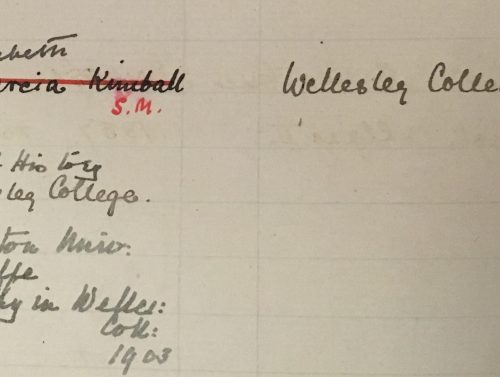 abeth
arcia Kimball Wellesley Colle
S.M.
t History
sley College.
ston Univ:
iffe
ry in Welles:
Coll:
1903